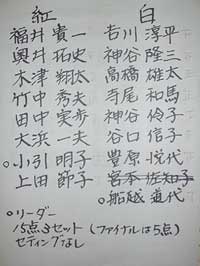 紅 白
福井 貴一 吉川 淳平
奥井 拓史 神谷 隆三
木津 翔太 高橋 雄太
竹中 秀夫 寺尾 和馬
田中 実歩 神谷 伶子
大浜 一夫 谷口 信子
○小引 明子 豊原 悦代
上田 節子 宮本 佐知子
○船越 道代
○リーダー
15点3セット(ファイナルは5点)
セティングなし